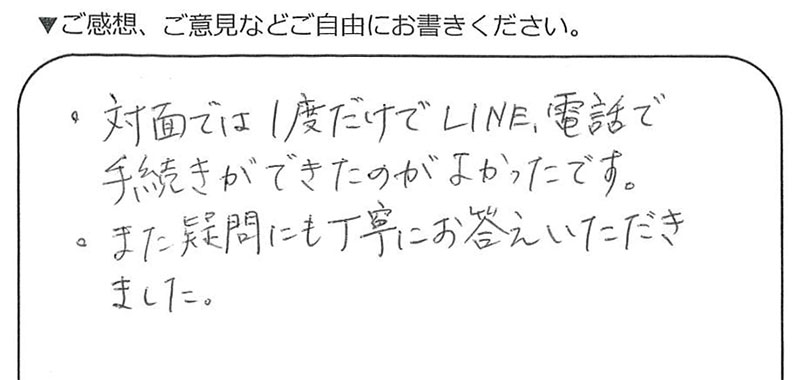 ▼ご感想、ご意見などご自由にお書きください。
。対面では1度だけでLINE、電話で
手続きができたのがよかったです。
。また疑問にも丁寧にお答えいただき
ました。